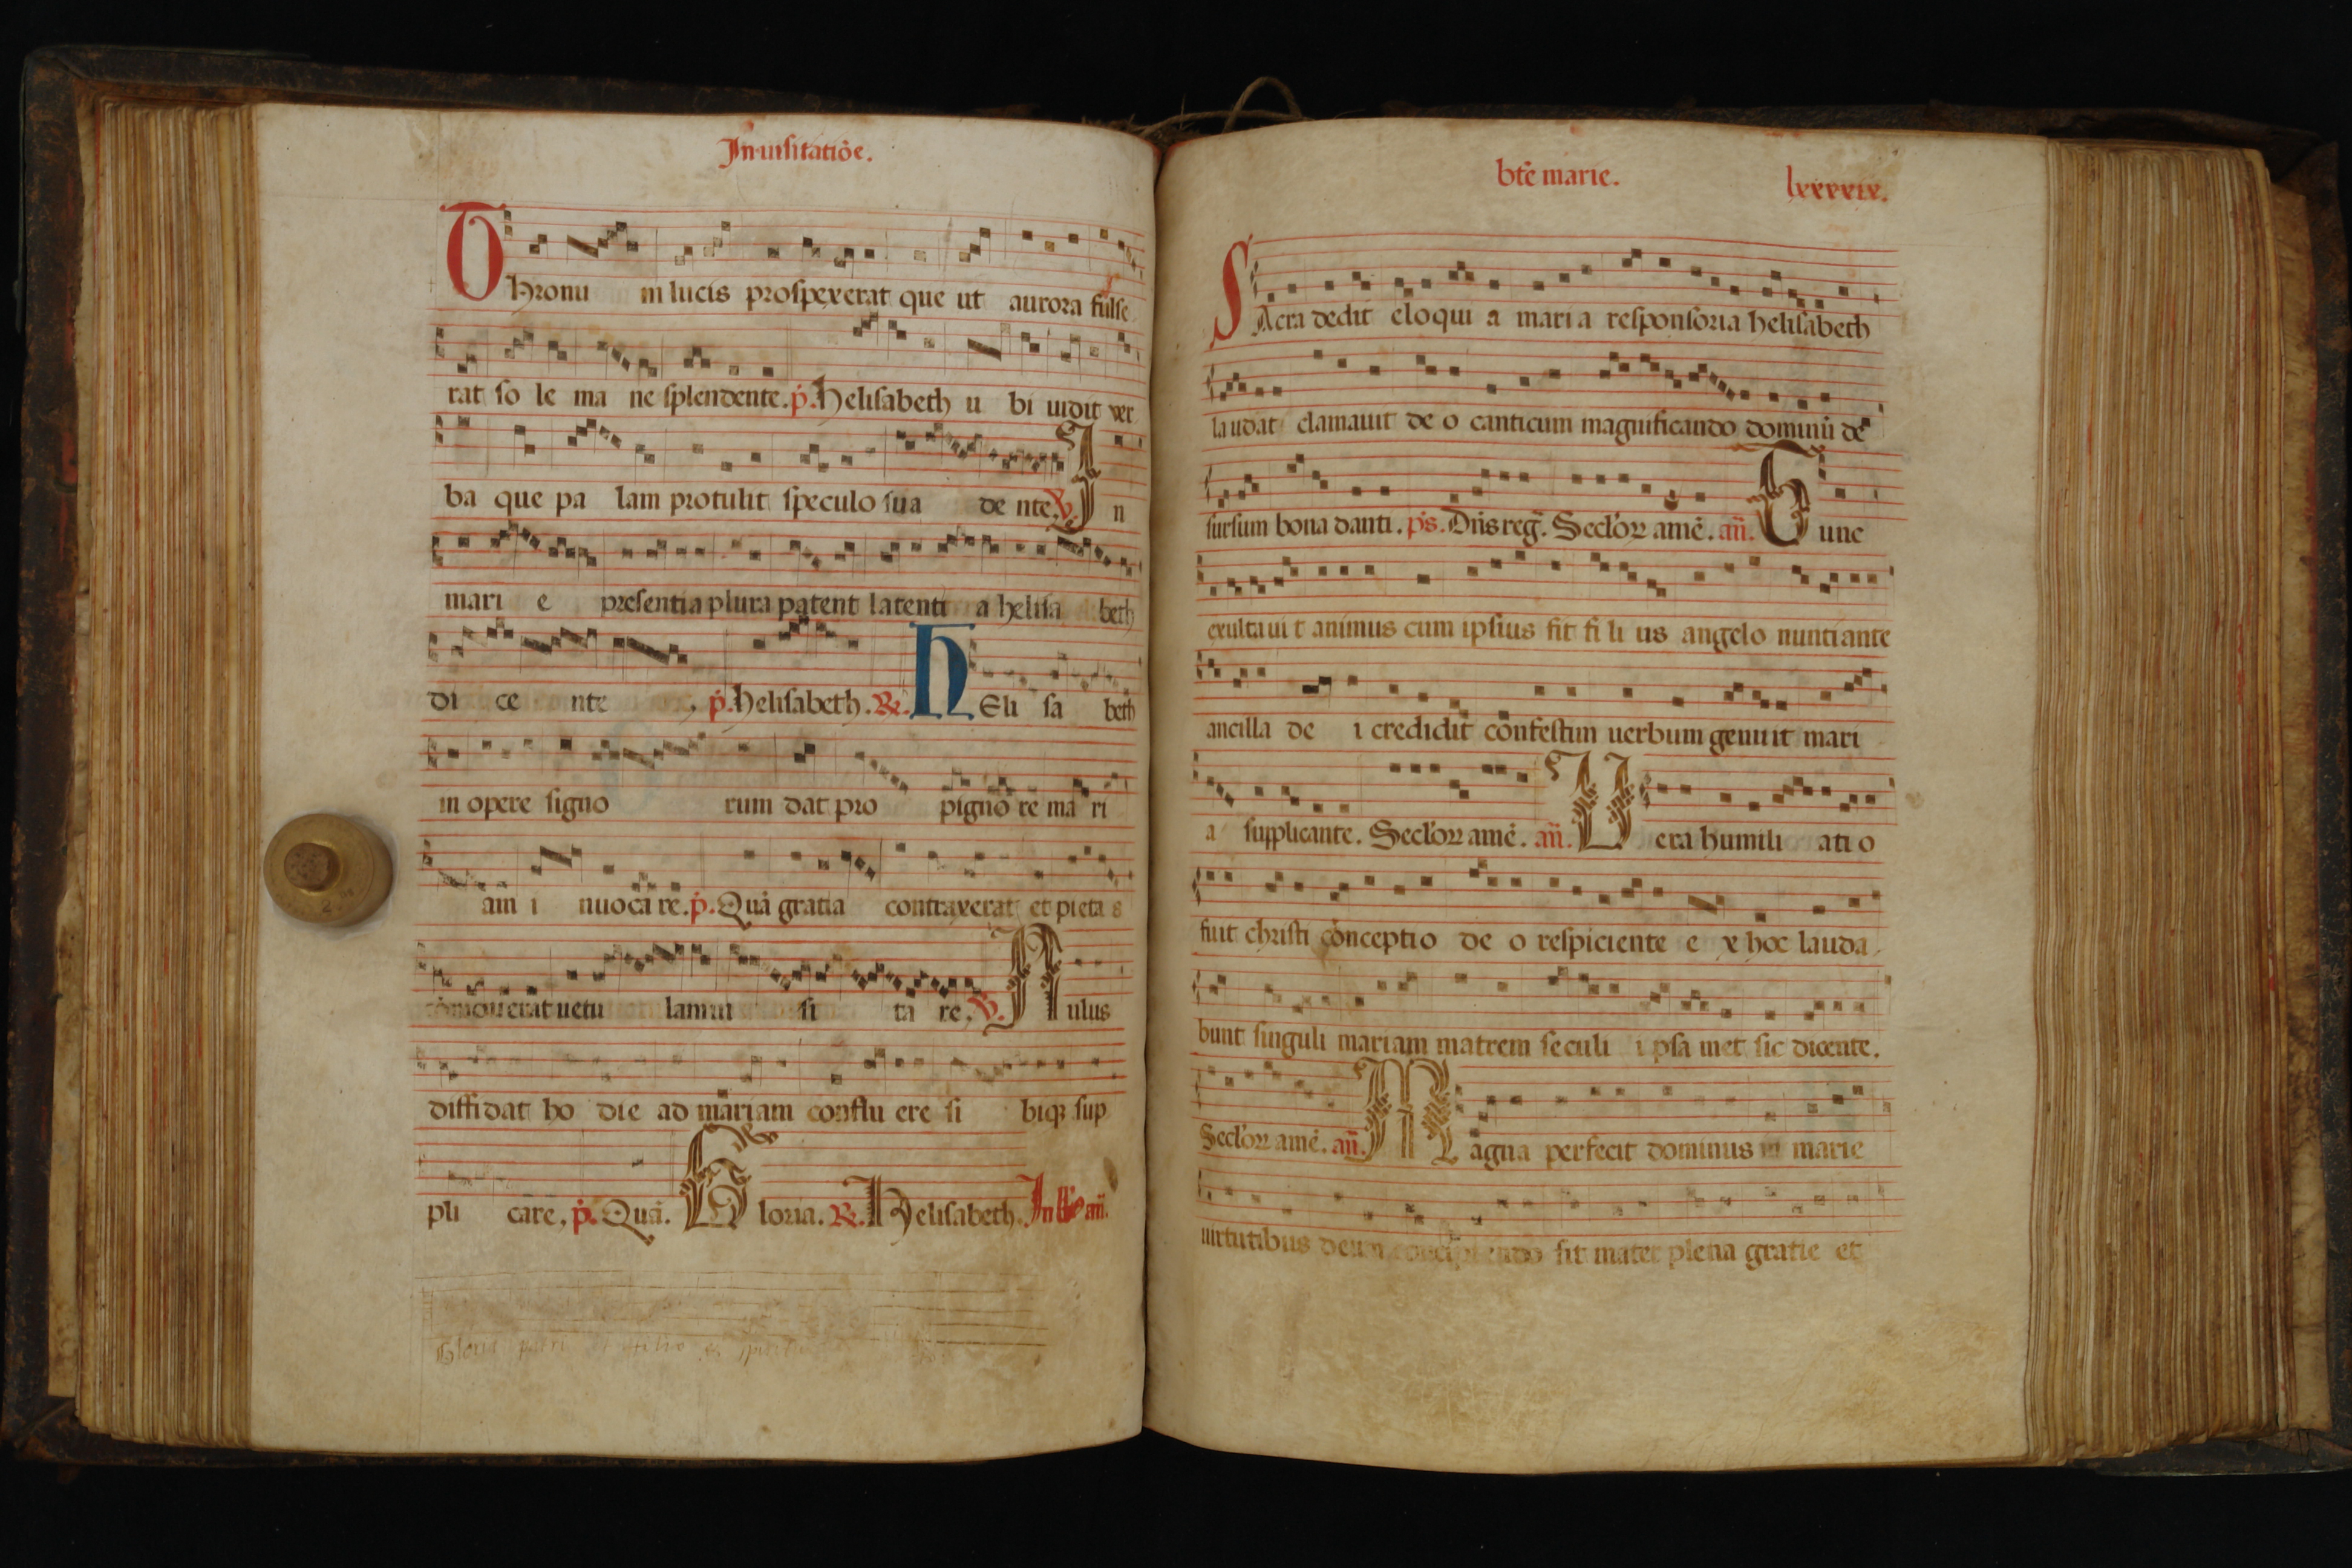 In uisitatiōe.
Thronu m lucis prospexerat que ut aurora fulse
rat so le ma ne splendente. p̄. Helisabeth u bi uidit ver
ba que pa lam protulit speculo sua de nte. V. In
mari e presentia plura patent latenti a helisa beth
di ce nte p̄. Helisabeth. R. HEli sa beth
in opere signo rum dat pro pigno re ma ri
am i nuoca re. p̄. Quā gratia contraxerat et pieta s
cōmouerat uetu lam ui si ta re. V. Nulus
diffidat ho die ad mariam conflu ere si biqꝫ sup
pli care, p̄. Quā. Gloria. R. Helisabeth. In añ.
Gloria patri et filio et spiritui
btē marie. lxxxxix.
SAcra dedit eloqui a mari a responsoria helisabeth
laudat clamauit de o canticum magnificando dominū de
sursum bona danti. ps. Dñs reg̃. Seclorꝝ amē. añ. Tunc
exultaui t animus cum ipsius fit fi li us angelo nuntiante
ancilla de i credidit confestim uerbum genuit mari
a supplicante. Seclorꝝ amē. añ. Uera humili ati o
fuit christi conceptio de o respiciente e x hoc lauda
bunt singuli mariam matrem seculi i psa met sic dicente.
Seclorꝝ amē. añ. Magna perfecit dominus in marie
uirtutibus deum concipiendo fit mater plena gratie et